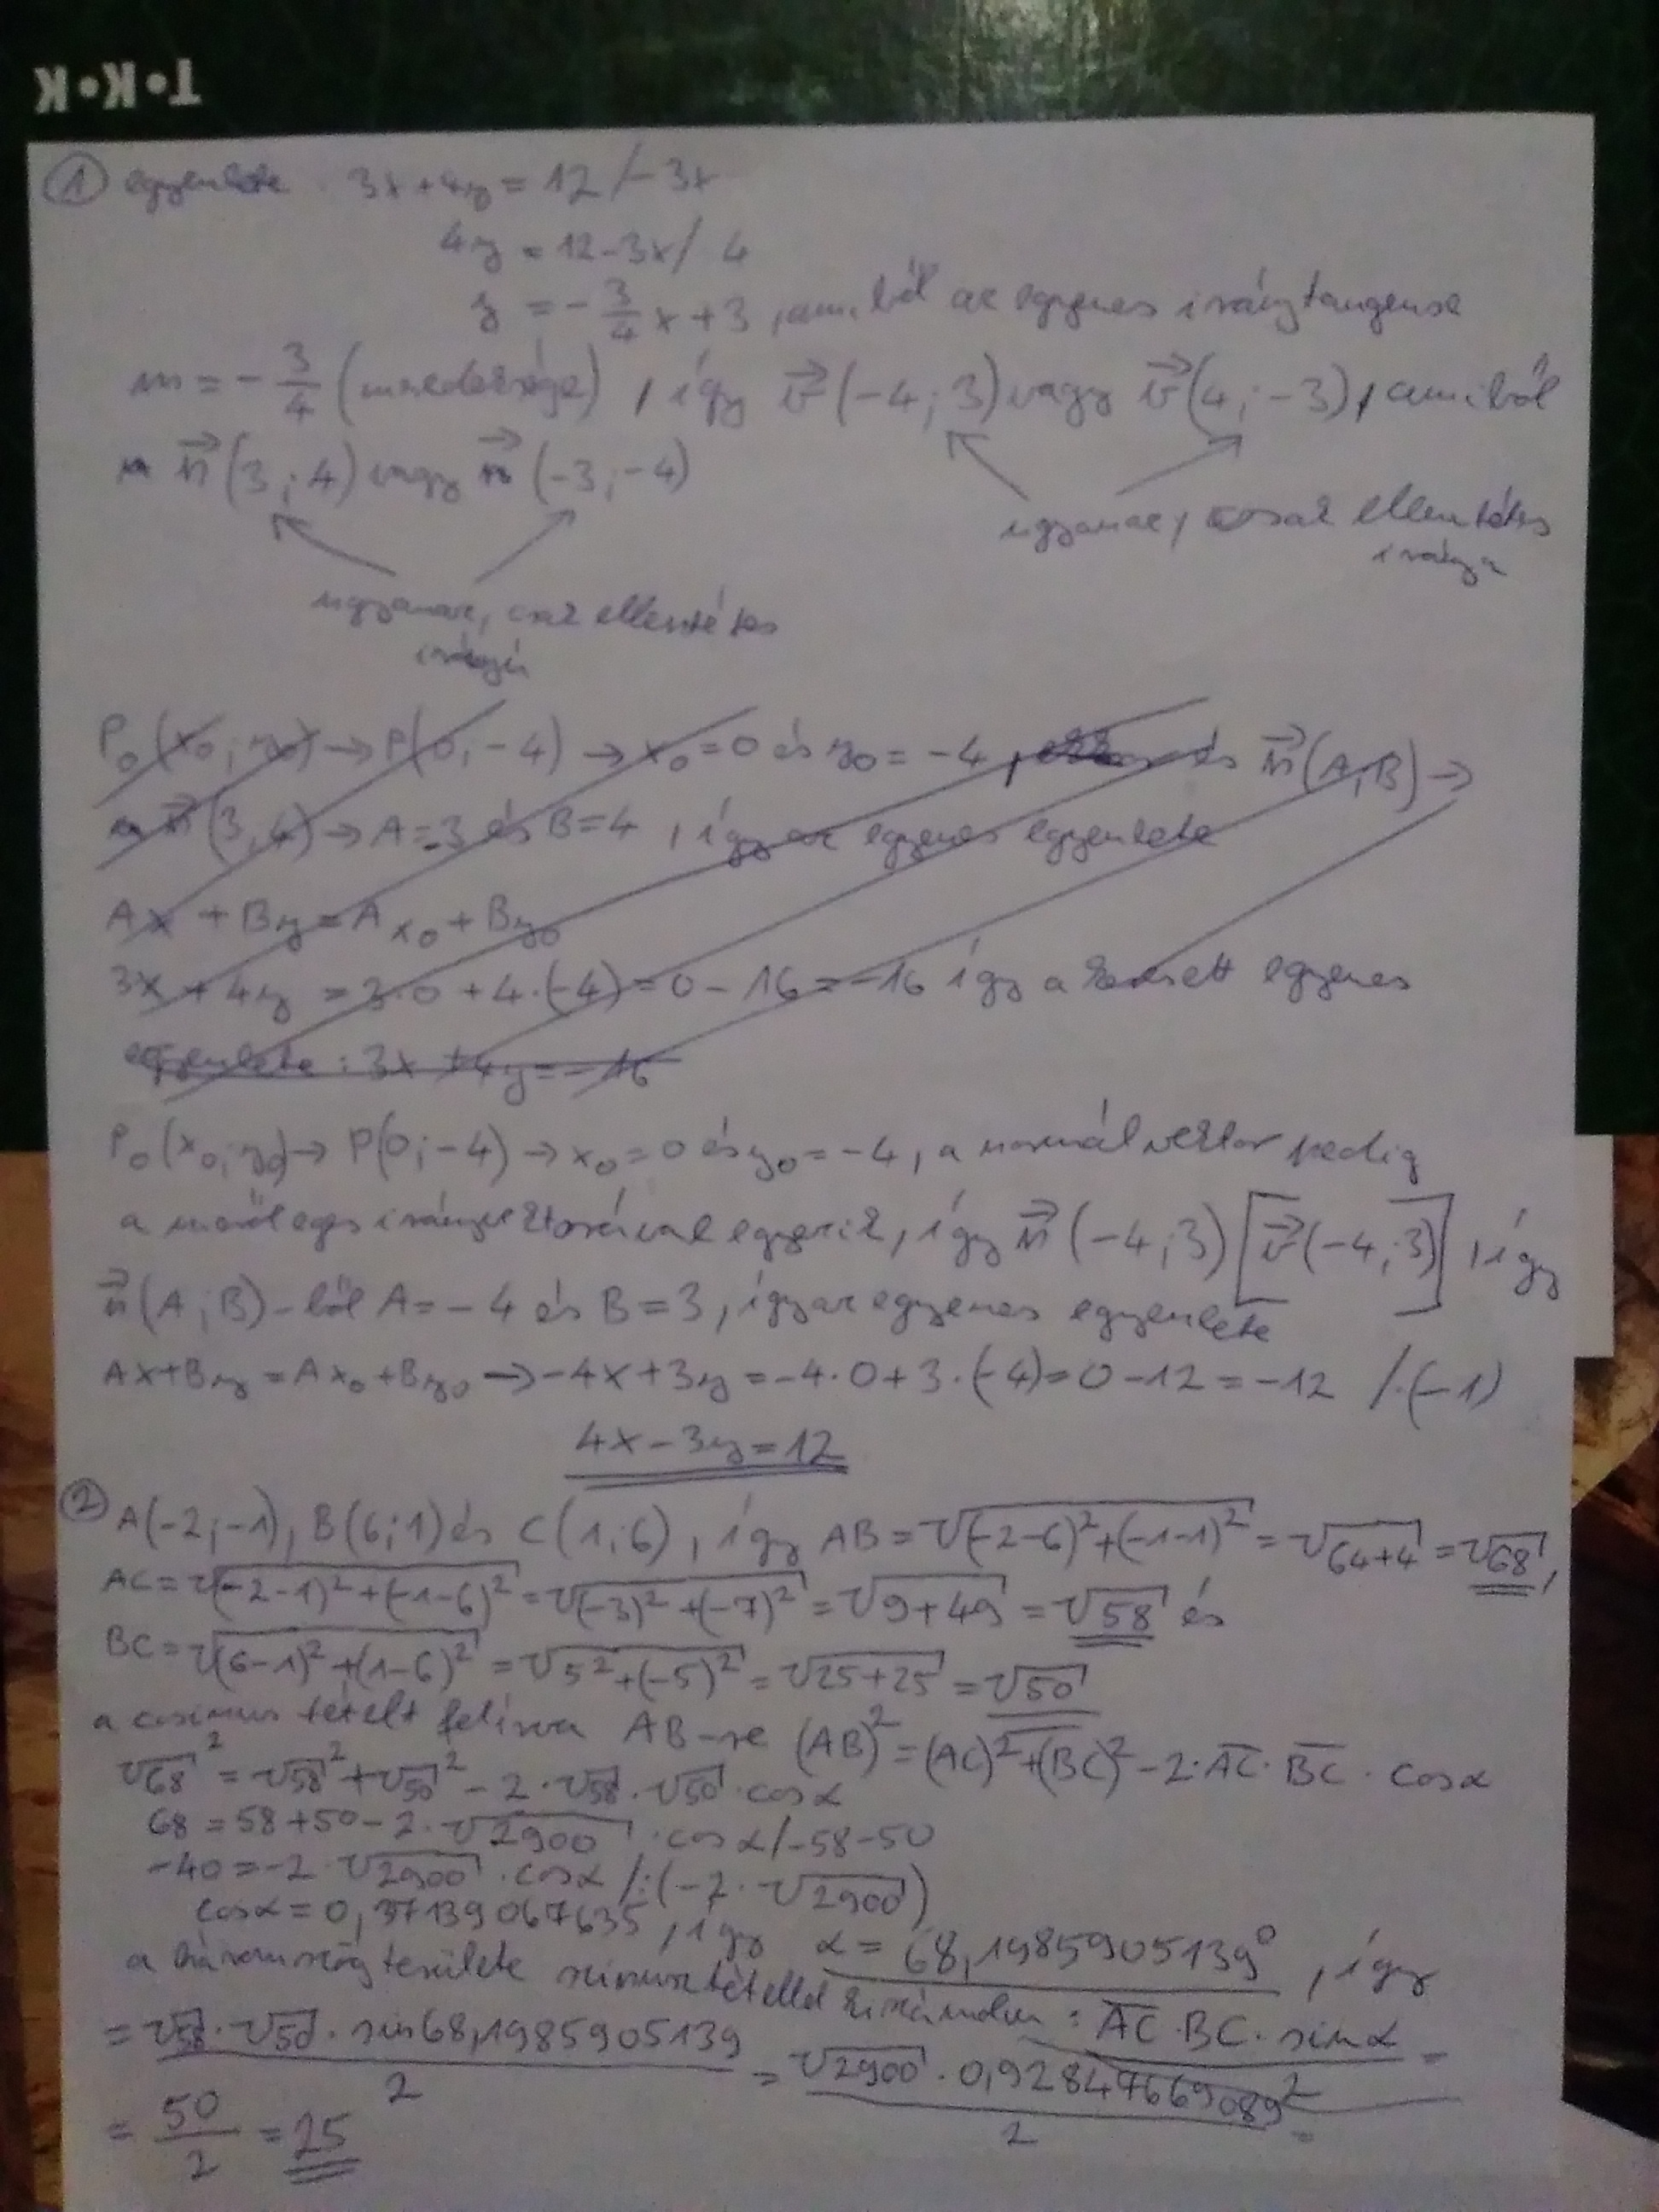 T•K•K
① egyenlete 3x+4y=12 /-3x
4y=12-3x/ 4
y=-3/4x+3, amiből az egyenes iránytangense
m=-3/4 (meredeksége), így v⃗(-4;3) vagy v⃗(4;-3), amiből
n⃗(3;4) vagy n⃗(-3;-4)
ugyanaz, csak ellentétes
irányú
ugyanaz, csak ellentétes
irányú
P₀(x₀;y₀)→P(0;-4)→x₀=0 és y₀=-4, és n⃗(A;B)→
n⃗(3;4)→A=3 és B=4, így az egyenes egyenlete
Ax+By=Ax₀+By₀
3x+4y=3·0+4·(-4)=0-16=-16 így a keresett egyenes
egyenlete: 3x+4y=-16
P₀(x₀;y₀)→P(0;-4)→x₀=0 és y₀=-4, a normálvektor pedig
a merőleges irányvektorával egyezik, így n⃗(-4;3)[v⃗(-4;3)], így
n⃗(A;B)-ből A=-4 és B=3, így az egyenes egyenlete
Ax+By=Ax₀+By₀→-4x+3y=-4·0+3·(-4)=0-12=-12 /·(-1)
4x-3y=12
② A(-2;-1), B(6;1) és C(1;6), így AB=√(-2-6)²+(-1-1)²=√64+4=√68,
AC=√(-2-1)²+(-1-6)²=√(-3)²+(-7)²=√9+49=√58 és
BC=√(6-1)²+(1-6)²=√5²+(-5)²=√25+25=√50
a cosinus tételt felírva AB-re (AB)²=(AC)²+(BC)²-2·AC·BC·cosα
√68²=√58²+√50²-2·√58·√50·cosα
68=58+50-2·√2900·cosα/-58-50
-40=-2·√2900·cosα/:(-2·√2900)
cosα=0,37139067635, így α=68,1985905139°, így
a háromszög területe szinusztétellel kiszámolva: AC·BC·sinα/2=
=√58·√50·sin68,1985905139/2=√2900·0,92847669089/2=
=50/2=25